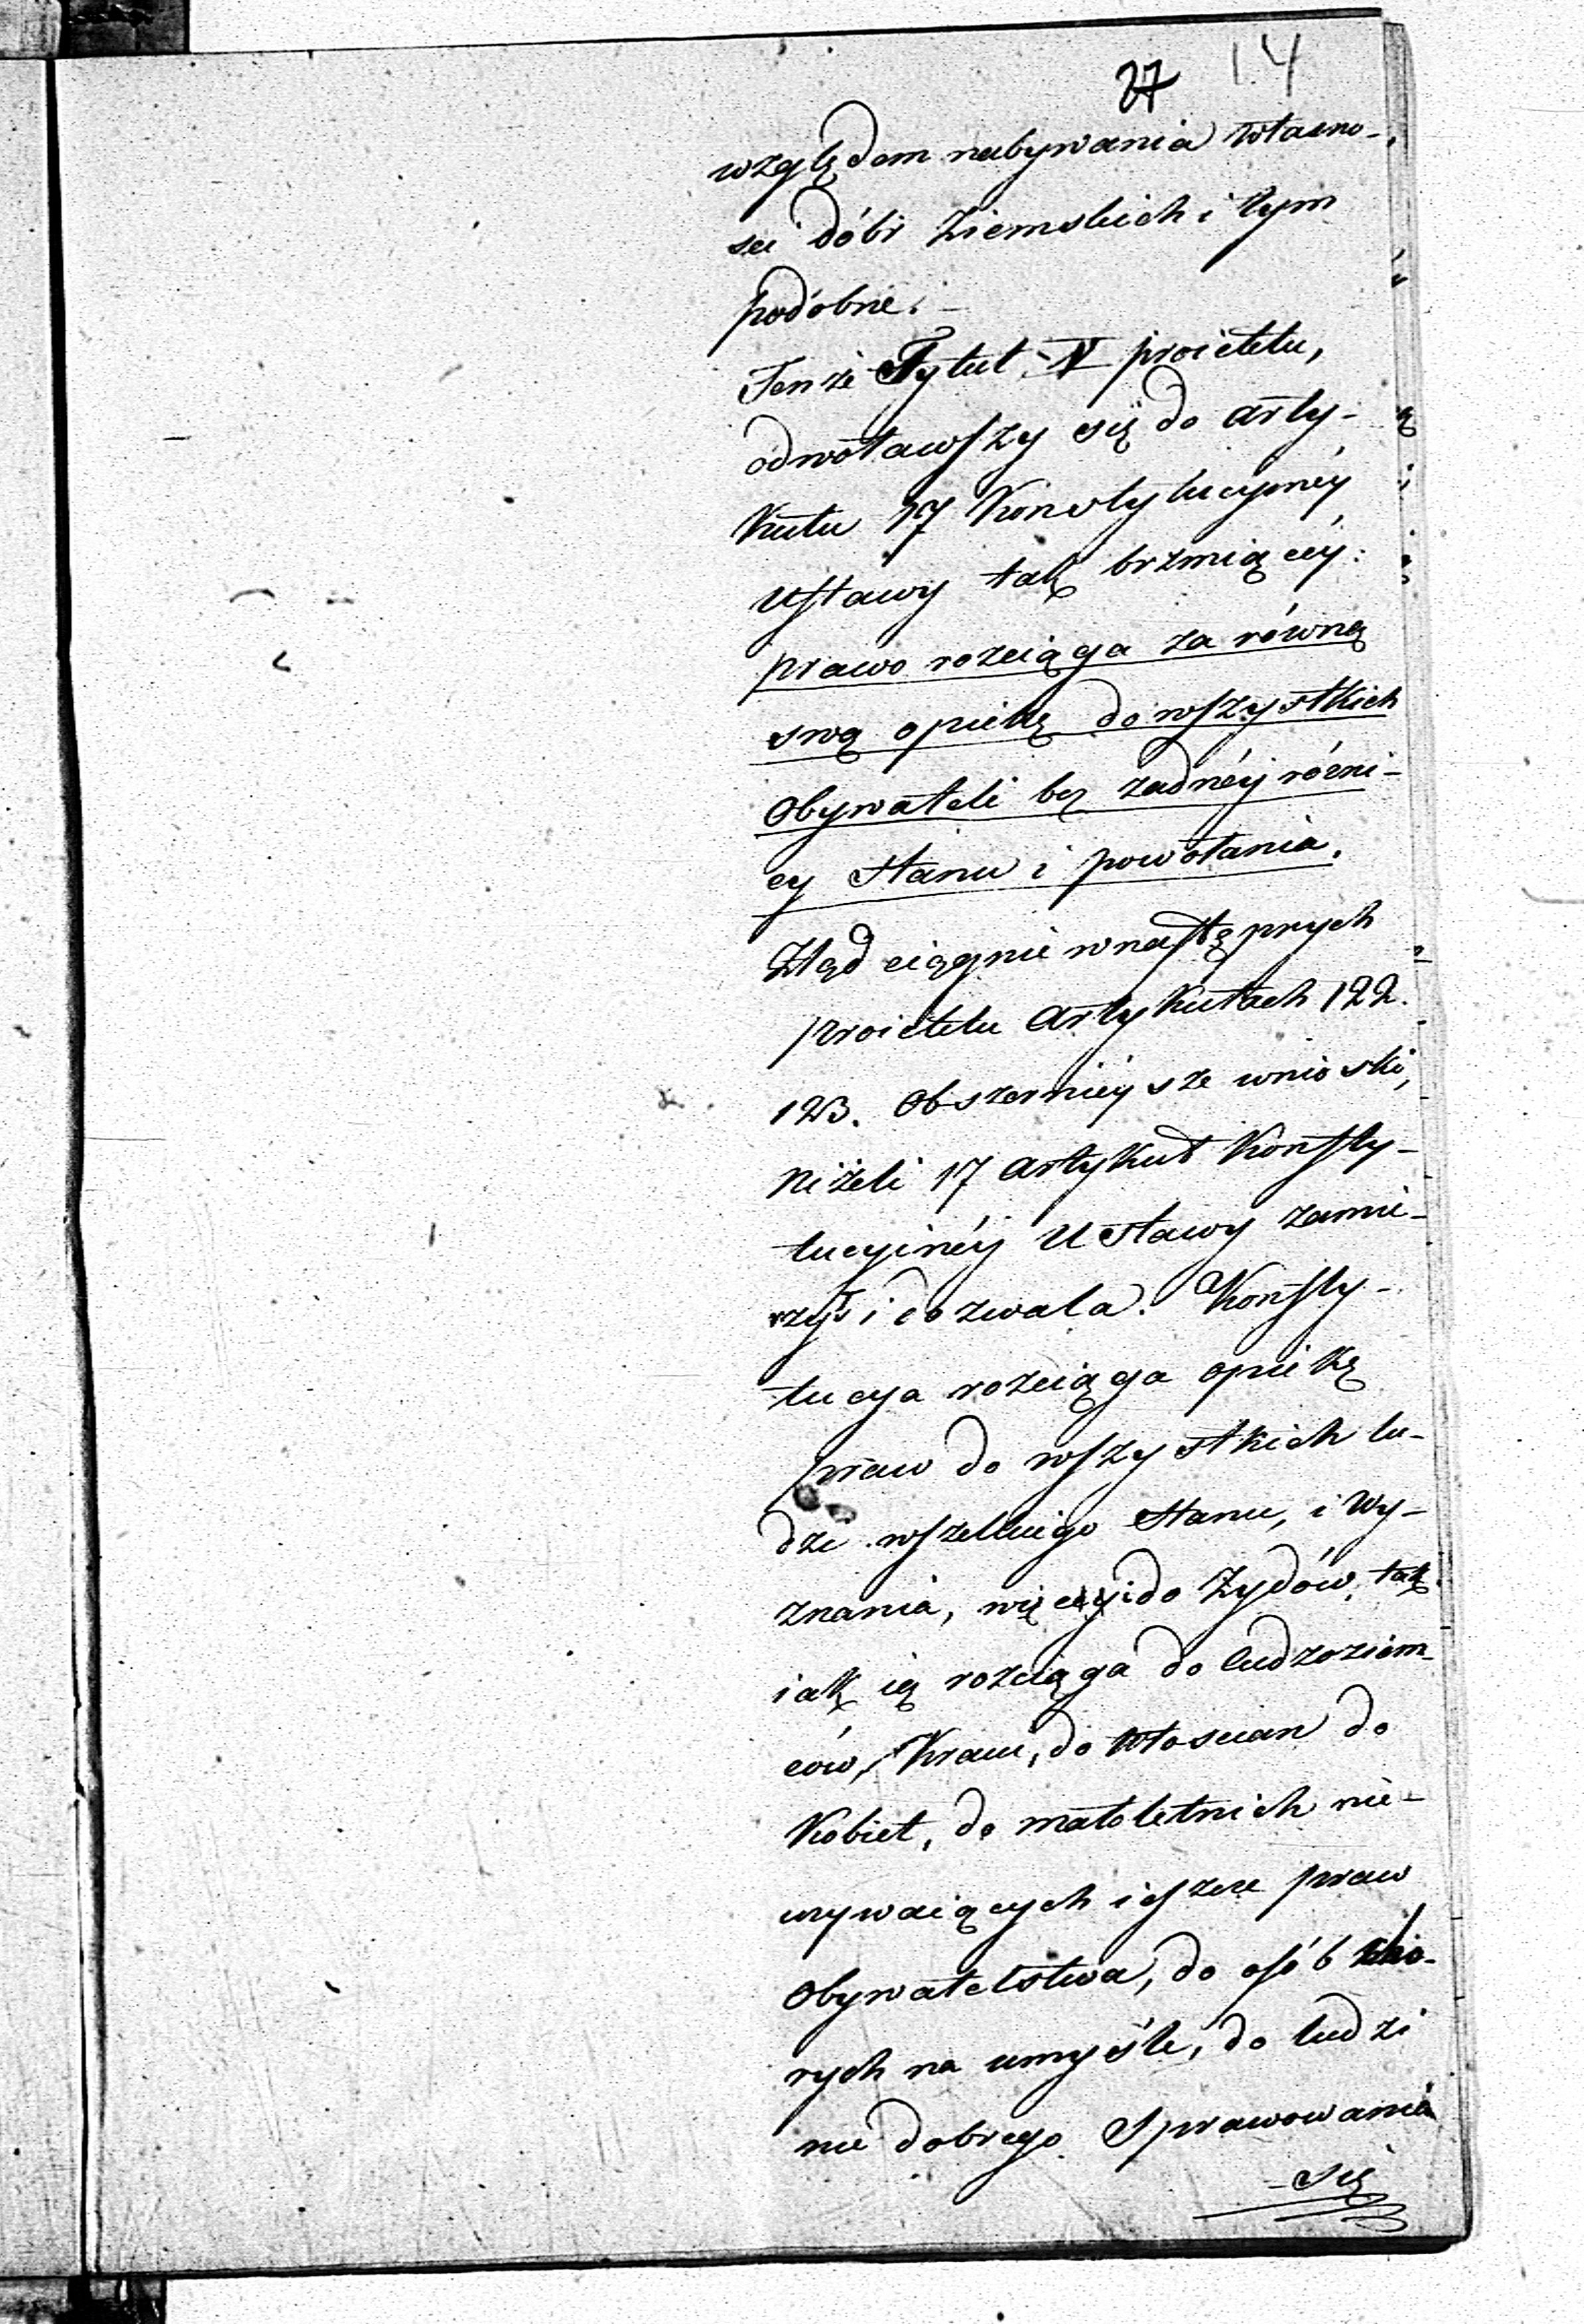 27 14
względem nabywania własno-
sci dóbr Ziemskich i tym
podobne. –
Tenże Tytuł V proiektu,
odwoławszy się do arty-
kułu 17 Konstytucyinéy
Ustawy tak brzmiącéy:
prawo rozciąga za równą
swą opiekę do wszystkich
Obywateli bez żadnéy rózni-
cy stanu i powołania.
Ztąd ciągnie w następnych
proiektu Artykułach 122.
123. Obszernieysze wnioski,
Niżeli 17 artykuł Konsty-
tucyinéy Ustawy zamie-
rzył i dozwala. Konsty-
tucya rozciąga opiekę
praw do wszystkich lu-
dzi wszelkiego stanu, i wy-
znania, więc i do Żydów, tak
iak ią rozciąga do cudzoziem-
ców, Kraiu, do włoscian do
Kobiet, do małoletnich nie-
używaiących ieszcze praw
Obywatelstwa, do osób cho-
rych na umyśle, do ludzi
nie dobrego sprawowania
się